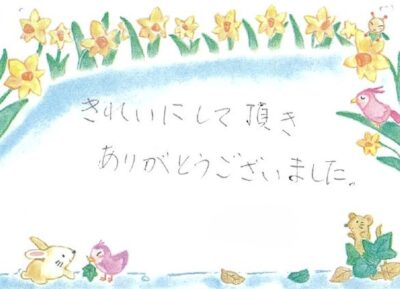 きれいにして頂き
ありがとうございました。